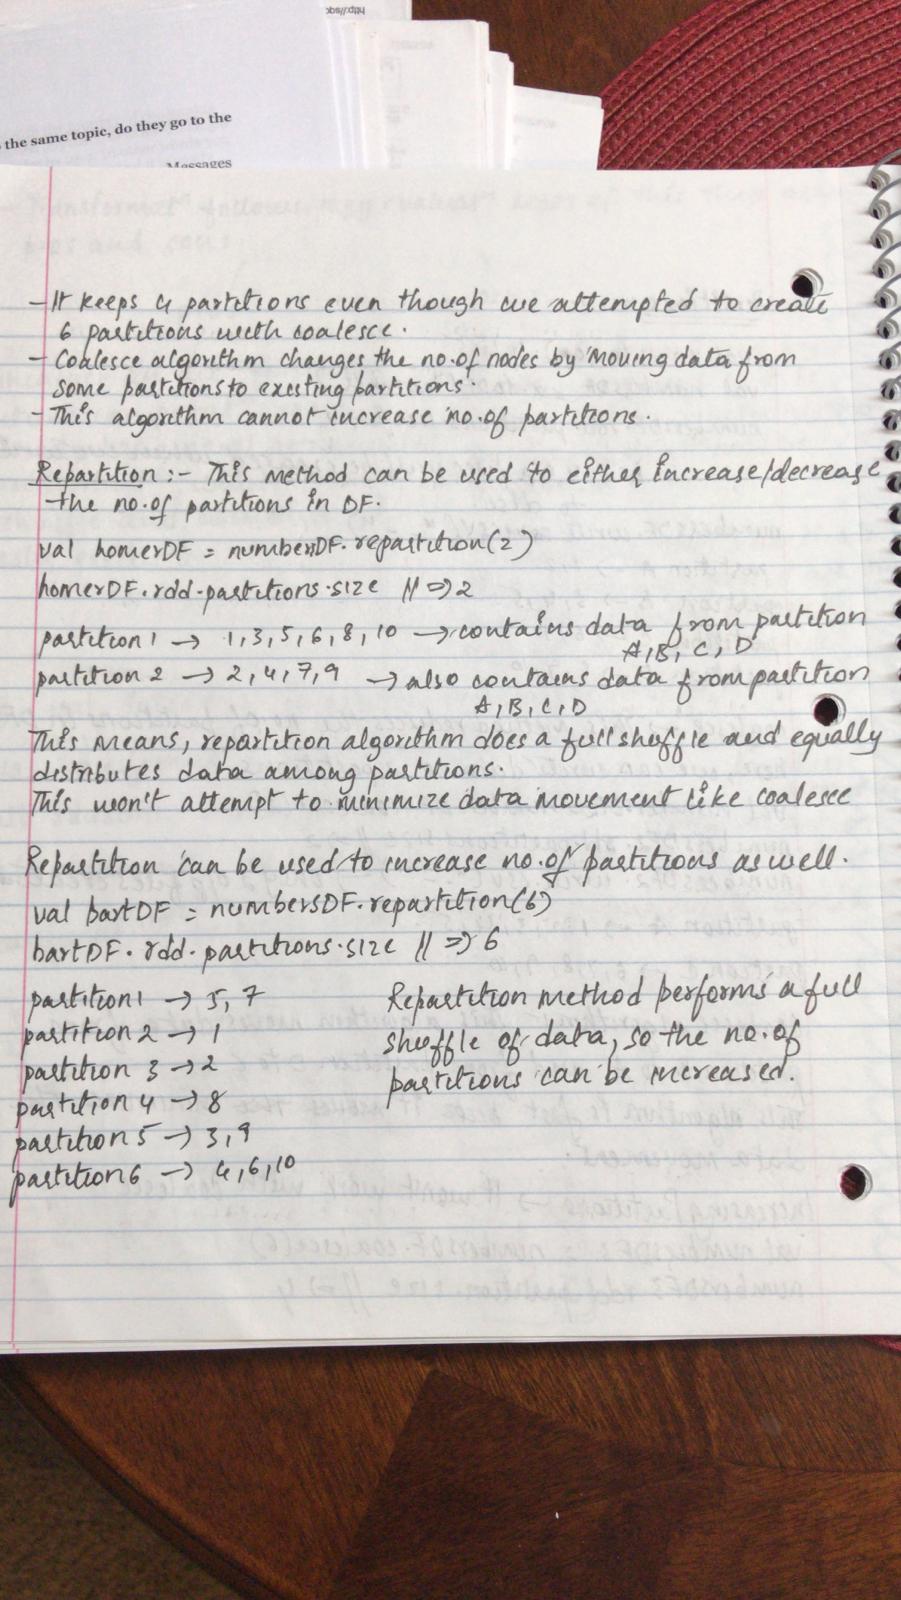 the same topic, do they go to the
Messages
- It keeps 4 partitions even though we attempted to create
6 partitions with coalesce.
- Coalesce algorithm changes the no.of nodes by moving data from
some partitions to existing partitions.
- This algorithm cannot increase no.of partitions.
Repartition :- This method can be used to either increase/decrease
the no.of partitions in DF.
val homerDF = numbersDF.repartition(2)
homerDF.rdd.partitions.size // => 2
partition 1 → 1,3,5,6,8,10 → contains data from partition
A,B,C,D
partition 2 → 2,4,7,9 → also contains data from partition
A,B,C,D
This means, repartition algorithm does a full shuffle and equally
distributes data among partitions.
This won't attempt to minimize data movement like coalesce
Repartition can be used to increase no.of partitions as well.
val bartDF = numbersDF.repartition(6)
bartDF.rdd.partitions.size // => 6
partition1 → 5,7
partition 2 → 1
partition 3 → 2
partition 4 → 8
partition 5 → 3,9
partition6 → 4,6,10
Repartition method performs a full
shuffle of data, so the no.of
partitions can be increased.